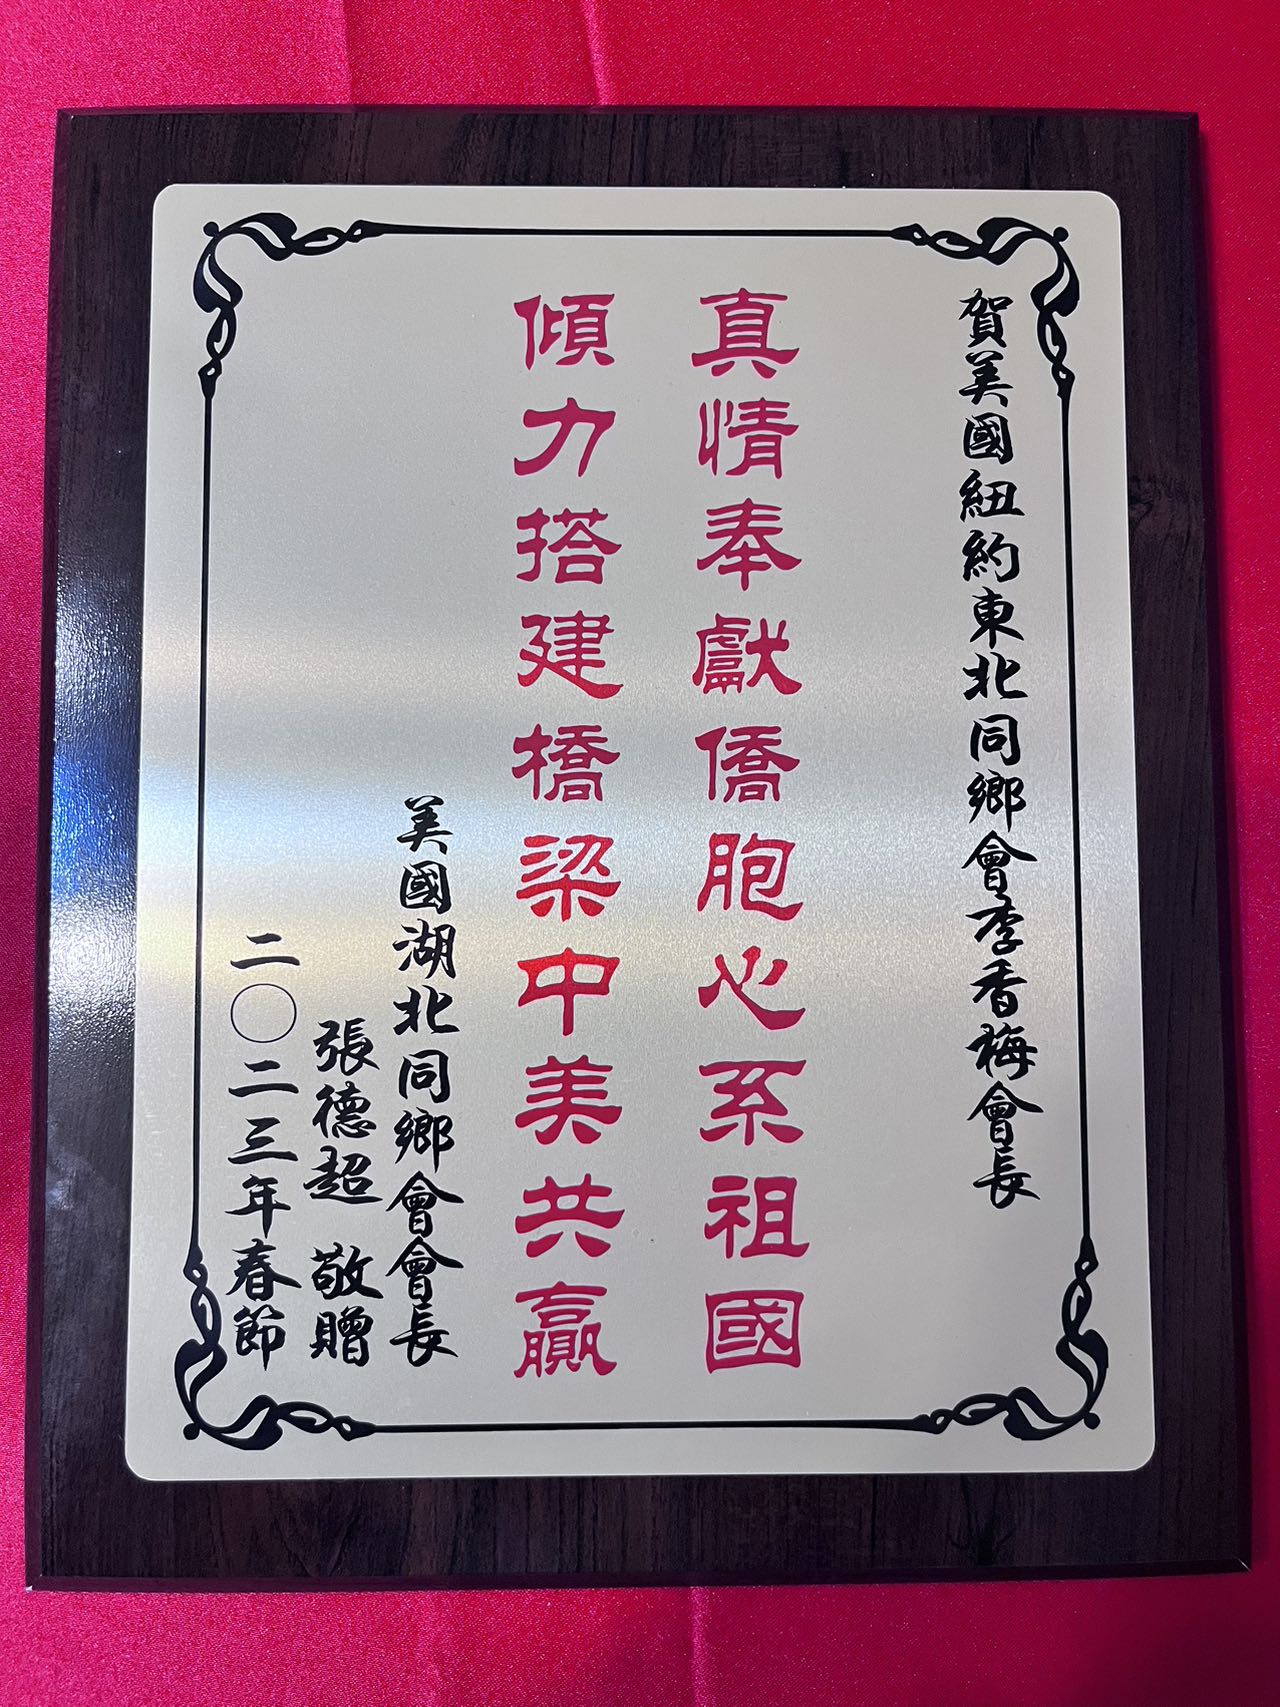 賀美國紐約東北同鄉會李香梅會長
真情奉獻僑胞心系祖國
傾力搭建橋梁中美共贏
美國湖北同鄉會會長
張德超 敬贈
二〇二三年春節